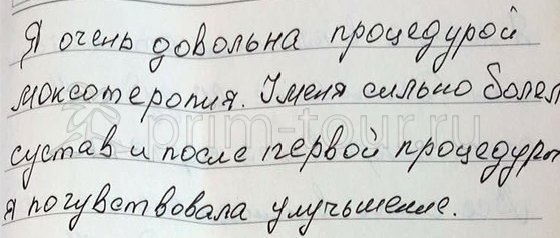 Я очень довольна процедурой
моксотеропия. У меня сильно болел
сустав и после первой процедуры
я почувствовала улучьшение.
prim-tour.ru